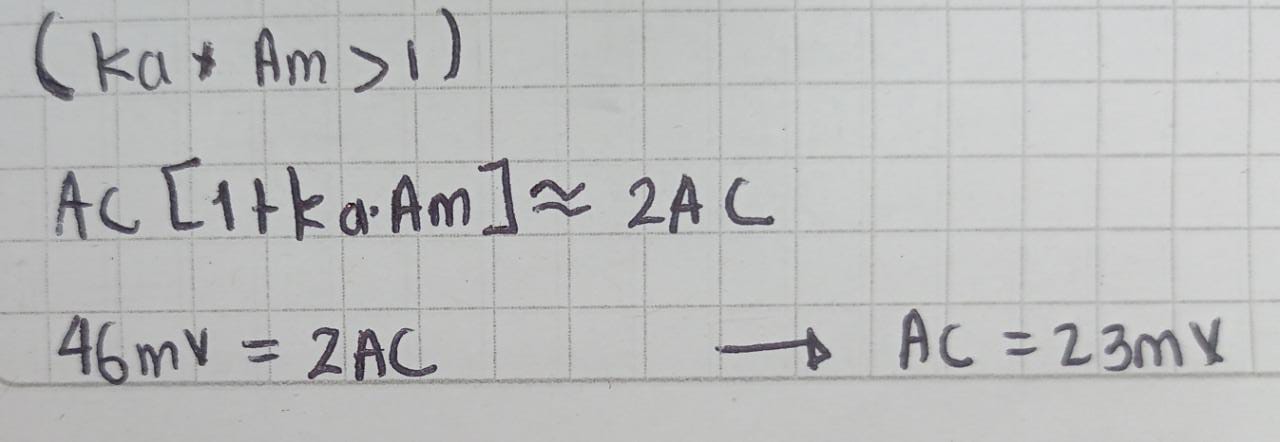 (ka * Am > 1)
AC [1+ka·Am] ≈ 2AC
46mV = 2AC → AC = 23mV